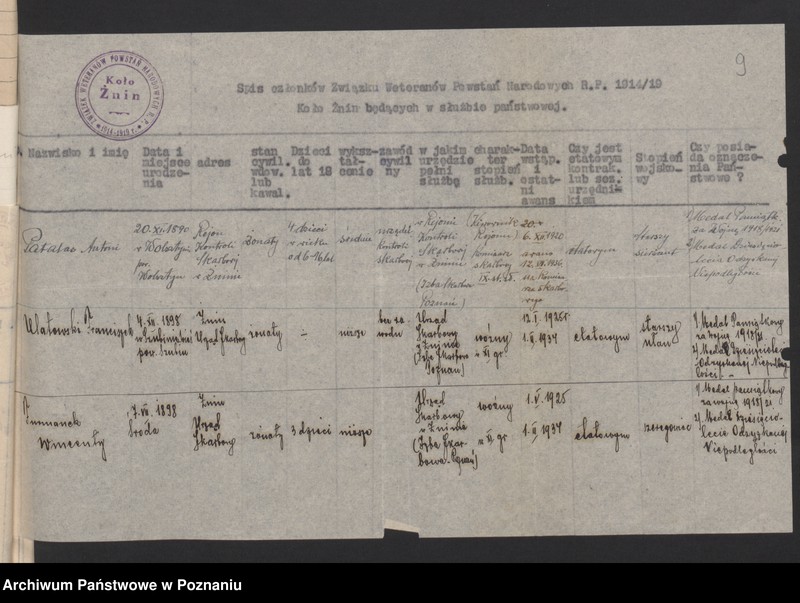 9
ZWIĄZEK WETERANÓW POWSTAŃ NARODOWYCH R.P.
Koło
Żnin
Spis członków Związku Weteranów Powstań Narodowych R.P. 1914/19
Koło Żnin będących w służbie państwowej.
Nazwisko i imię
Data i
miejsce
urodze-
nia
adres
stan
cywil.
wdow.
lub
kawal.
Dzieci
do
lat 18
wyksz-
tał-
cenie
zawód
cywil
ny
w jakim
urzędzie
pełni
służbę
charak-
ter
stopień
służb.
Data
wstąp.
i
ostat-
ni
awans
Czy jest
etatowym
kontrak.
lub sez.
urzędni-
kiem
Stopień
wojsko-
wy
Czy posia-
da odznacze-
nia Pań-
stwowe ?
Antoni
20.XI.1890
w Wolsztynie
pow.
Wolsztyn
Rejon
Kontroli
Skarbowej
w Żninie
żonaty
4 dzieci
w wieku
od 6-16 lat
średnie
Kontroli
skarbowej
w Rejonie
Kontroli
Skarbowej
w Żninie
(Izba Skarbowa
Poznań)
(Kierownik
Rejonu)
skarbowy
6.XII.1920
etatowym
starszy
sierżant
1) Medal Pamiątk.
za Wojnę 1918/1921
2) Medal Dziesięcio-
lecia Odzyskanej
Niepodległości
Ulatowski Franciszek
1898
pow. Żnin
Żnin
Urząd Skarbowy
żonaty
-
niższe
bez za
wodu
Urząd
Skarbowy
w Żninie
(Izba Skarbowa
Poznań)
woźny
w XI gr.
1925r
1.II.1934
etatowym
starszy
ułan
1) Medal Pamiątkowy
za wojnę 1918/21
2) Medal Dziesięciolecia
Odzyskanej Niepodleg-
łości
Wincenty
7.VII.1898
Środa
Żnin
Urząd
Skarbowy
żonaty
3 dzieci
niższe
Urząd
Skarbowy
w Żninie
(Izba Skar-
bowa Poznań)
woźny
w XI gr
1.V.1925
1.II.1934
etatowym
szeregowiec
1) Medal pamiątkowy
za wojnę 1918/21
2) Medal Dziesięcio-
lecie Odzyskanej
Niepodległości
Archiwum Państwowe w Poznaniu